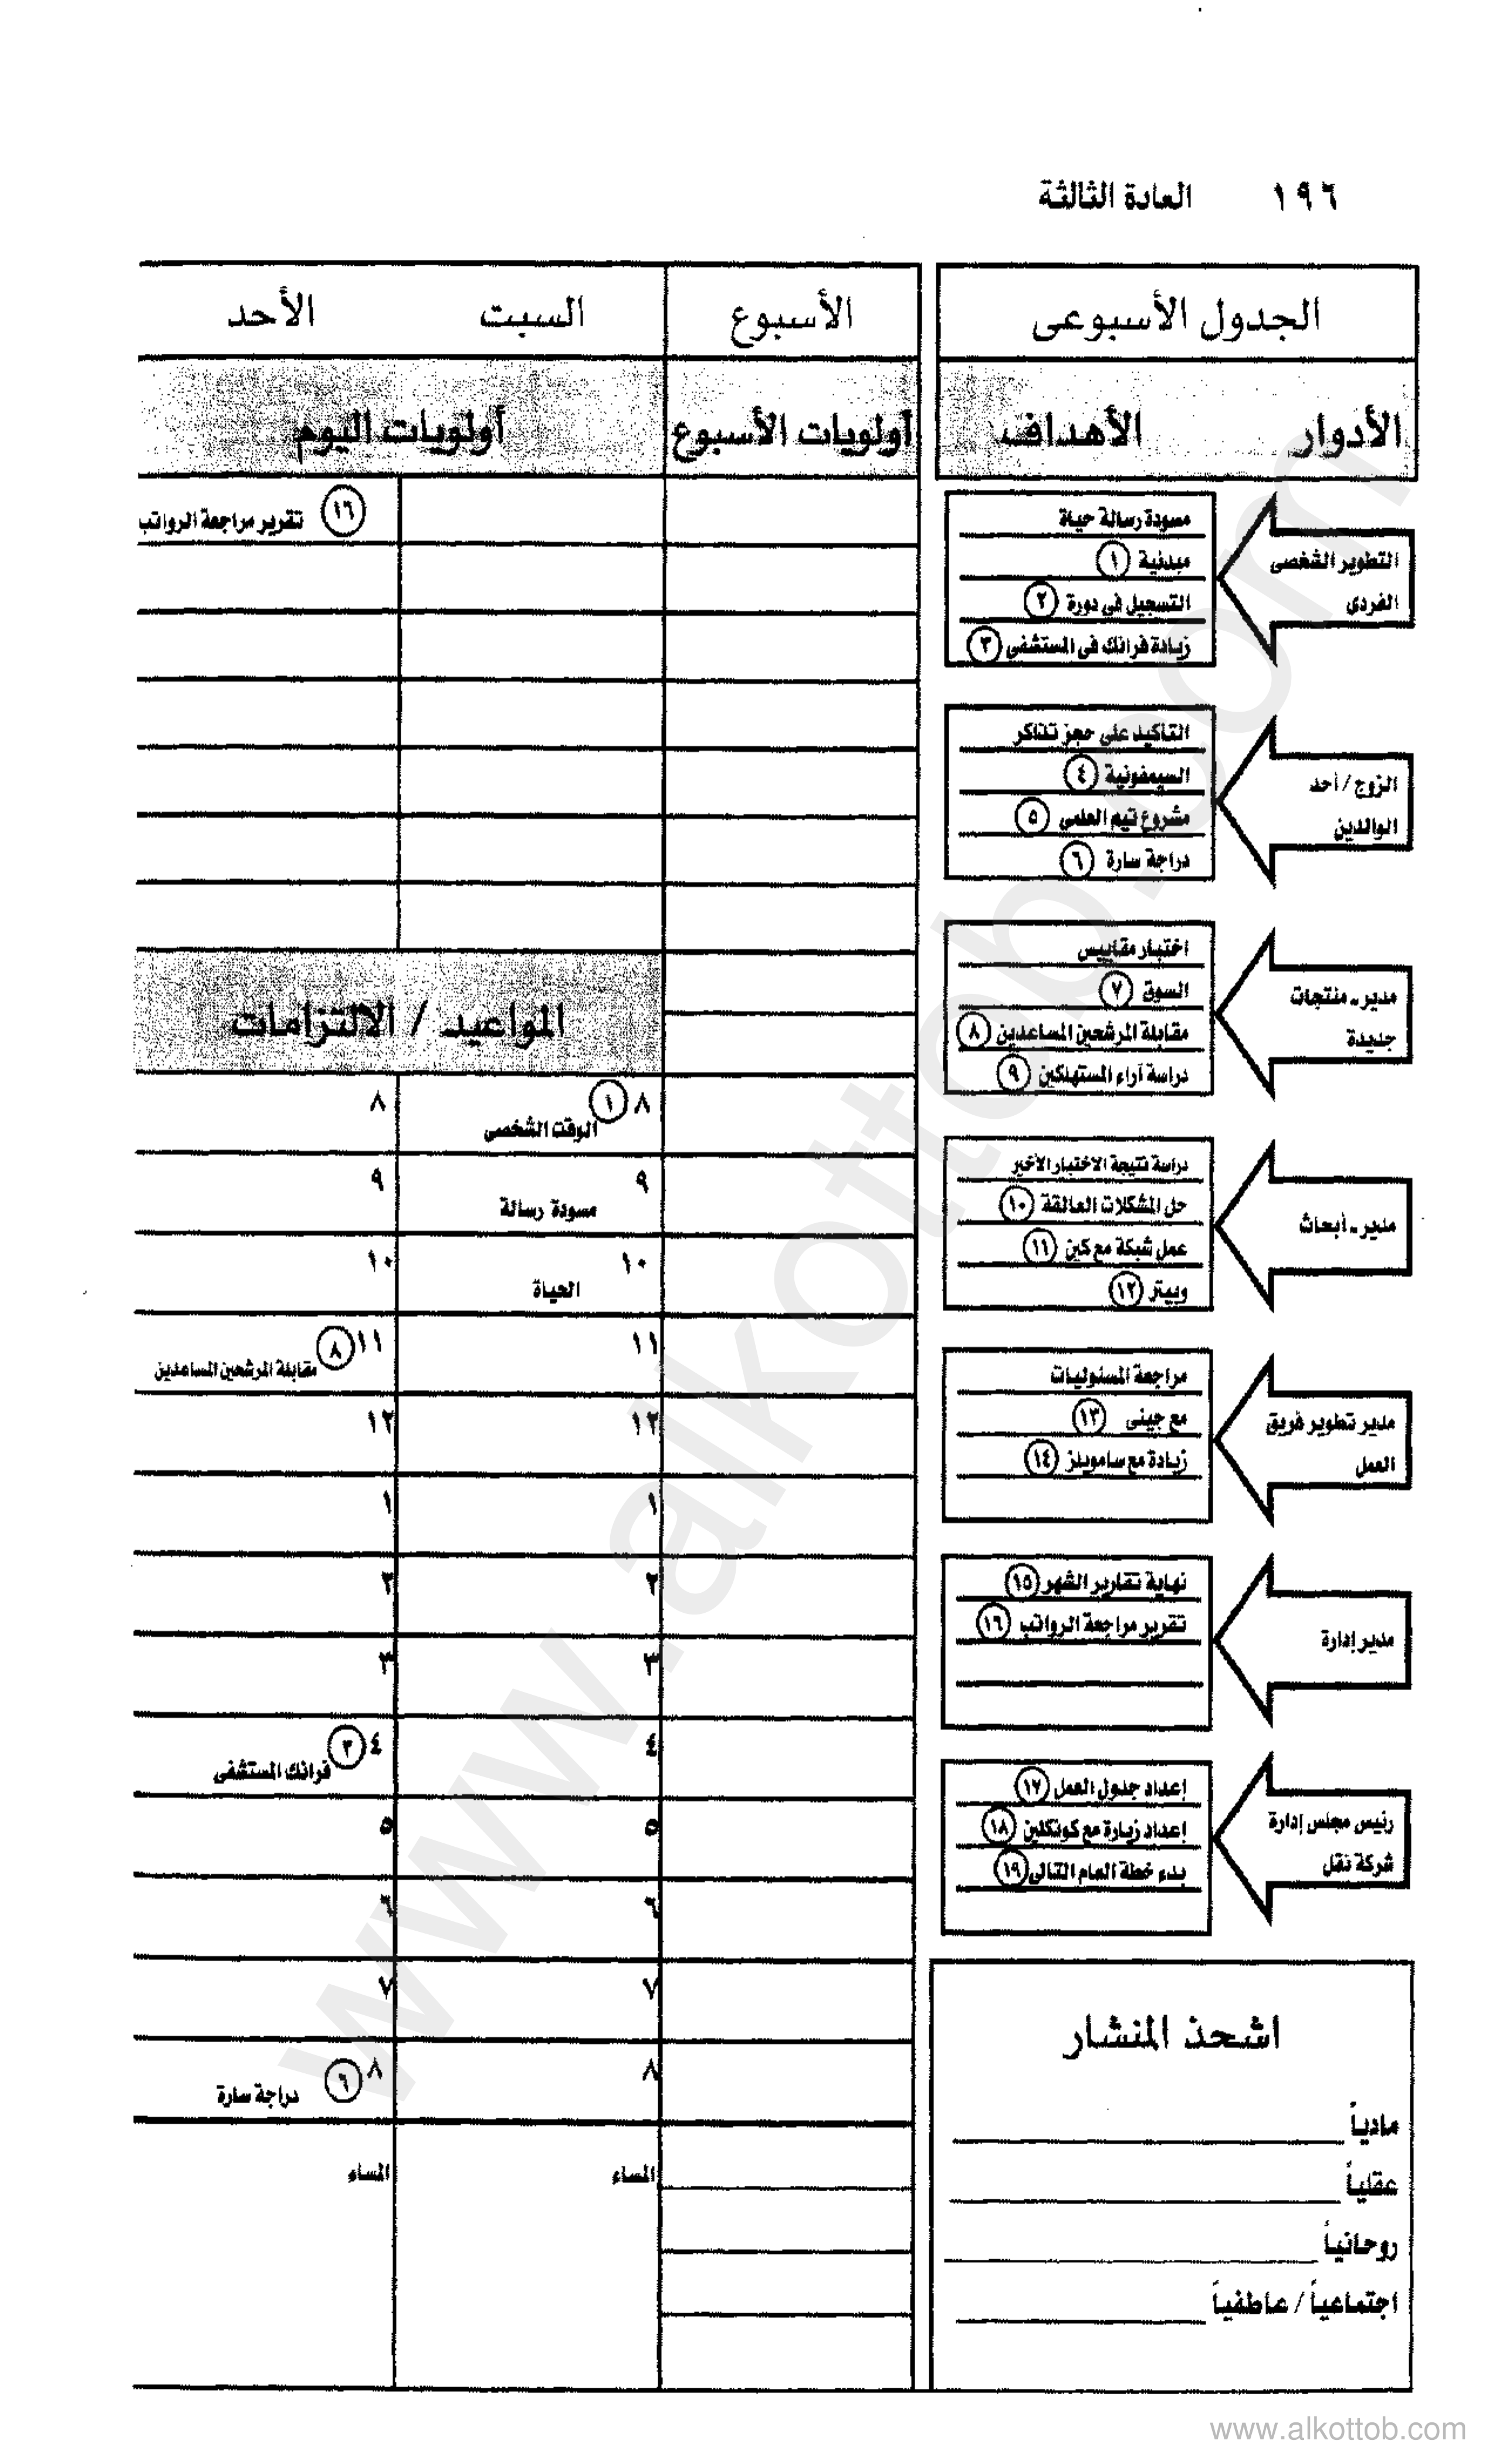 ١٩٦ العادة الثالثة
الجدول الأسبوعى
الأدوار الأهداف
التطوير الشخصى
الفردى
مسودة رسالة حياة
مبدئية ١
التسجيل فى دورة ٢
زيادة فرانك فى المستشفى ٣
الزوج / أحد
الوالدين
التأكيد على حجز تذاكر
السيمفونية ٤
مشروع تيم العلمى ٥
دراجة سارة ٦
مدير ـ منتجات
جديدة
اختبار مقاييس
السوق ٧
مقابلة المرشحين المساعدين ٨
دراسة آراء المستهلكين ٩
مدير ـ أبحاث
دراسة نتيجة الاختبار الأخير
حل المشكلات العالقة ١٠
عمل شبكة مع كين ١١
وبيتر ١٢
مدير تطوير فريق
العمل
مراجعة المسئوليات
مع جينى ١٣
زيادة مع سامويلز ١٤
مدير إدارة
نهاية تقارير الشهر ١٥
تقرير مراجعة الرواتب ١٦
رئيس مجلس إدارة
شركة نقل
إعداد جدول العمل ١٧
إعداد زيارة مع كونكلين ١٨
بدء خطة العام التالى ١٩
اشحذ المنشار
مادياً
عقلياً
روحانياً
اجتماعياً / عاطفياً
الأسبوع السبت الأحد
أولويات الأسبوع أولويات اليوم
١٦ تقرير مراجعة الرواتب
المواعيد / الالتزامات
٨ ١ الوقت الشخصى
٨
٩ مسودة رسالة
٩
١٠ الحياة
١٠
١١
١١ ٨ مقابلة المرشحين المساعدين
١٢
١٢
١
١
٢
٢
٣
٣
٤
٤ ٣ فرانك المستشفى
٥
٥
٦
٦
٧
٧
٨
٨ ٦ دراجة سارة
المساء
المساء
www.alkottob.com
www.alkottob.com